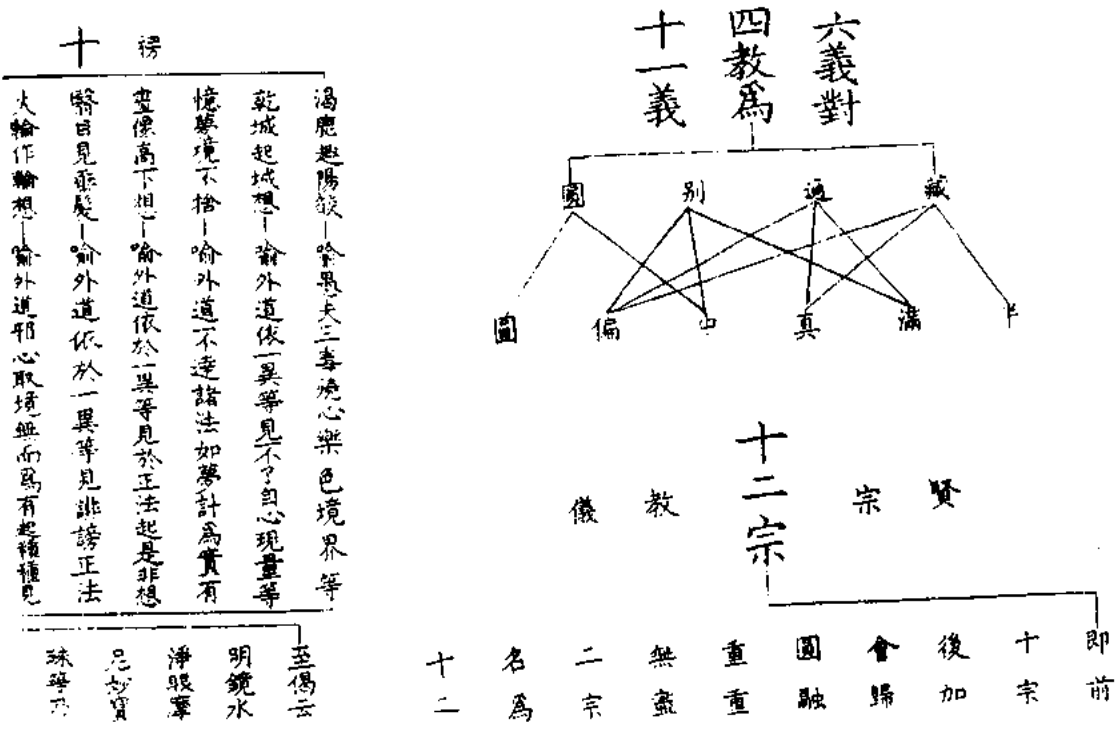 六義對
四教爲
十一義
藏
通
別
圓
半
滿
真
中
偏
圓
賢
宗
十二宗
教
儀
即前
十宗
後加
會歸
圓融
重重
無盡
二宗
名爲
十二
十
渴鹿趣陽燄—喻愚夫三毒燒心樂色境界等
乾城起城想—喻外道依一異等見不了自心現量等
憶夢境不捨—喻外道不達諸法如夢計爲實有
畫像高下想—喻外道依於一異等見於正法起是非想
翳目見垂髮—喻外道依於一異等見誹謗正法
火輪作輪想—喻外道邪心取境無而爲有起種種見
至偈云
明鏡水
淨眼摩
尼妙寶
珠等